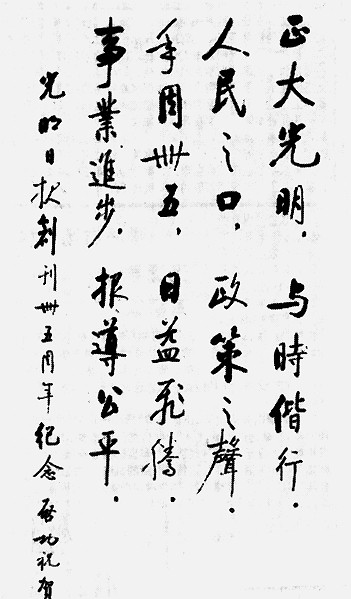 正大光明，与時偕行．
人民之口，政策之聲．
年周卅五，日益飛騰．
事業進步，報導公平．
光明日报創刊卅五周年紀念 啓功祝賀